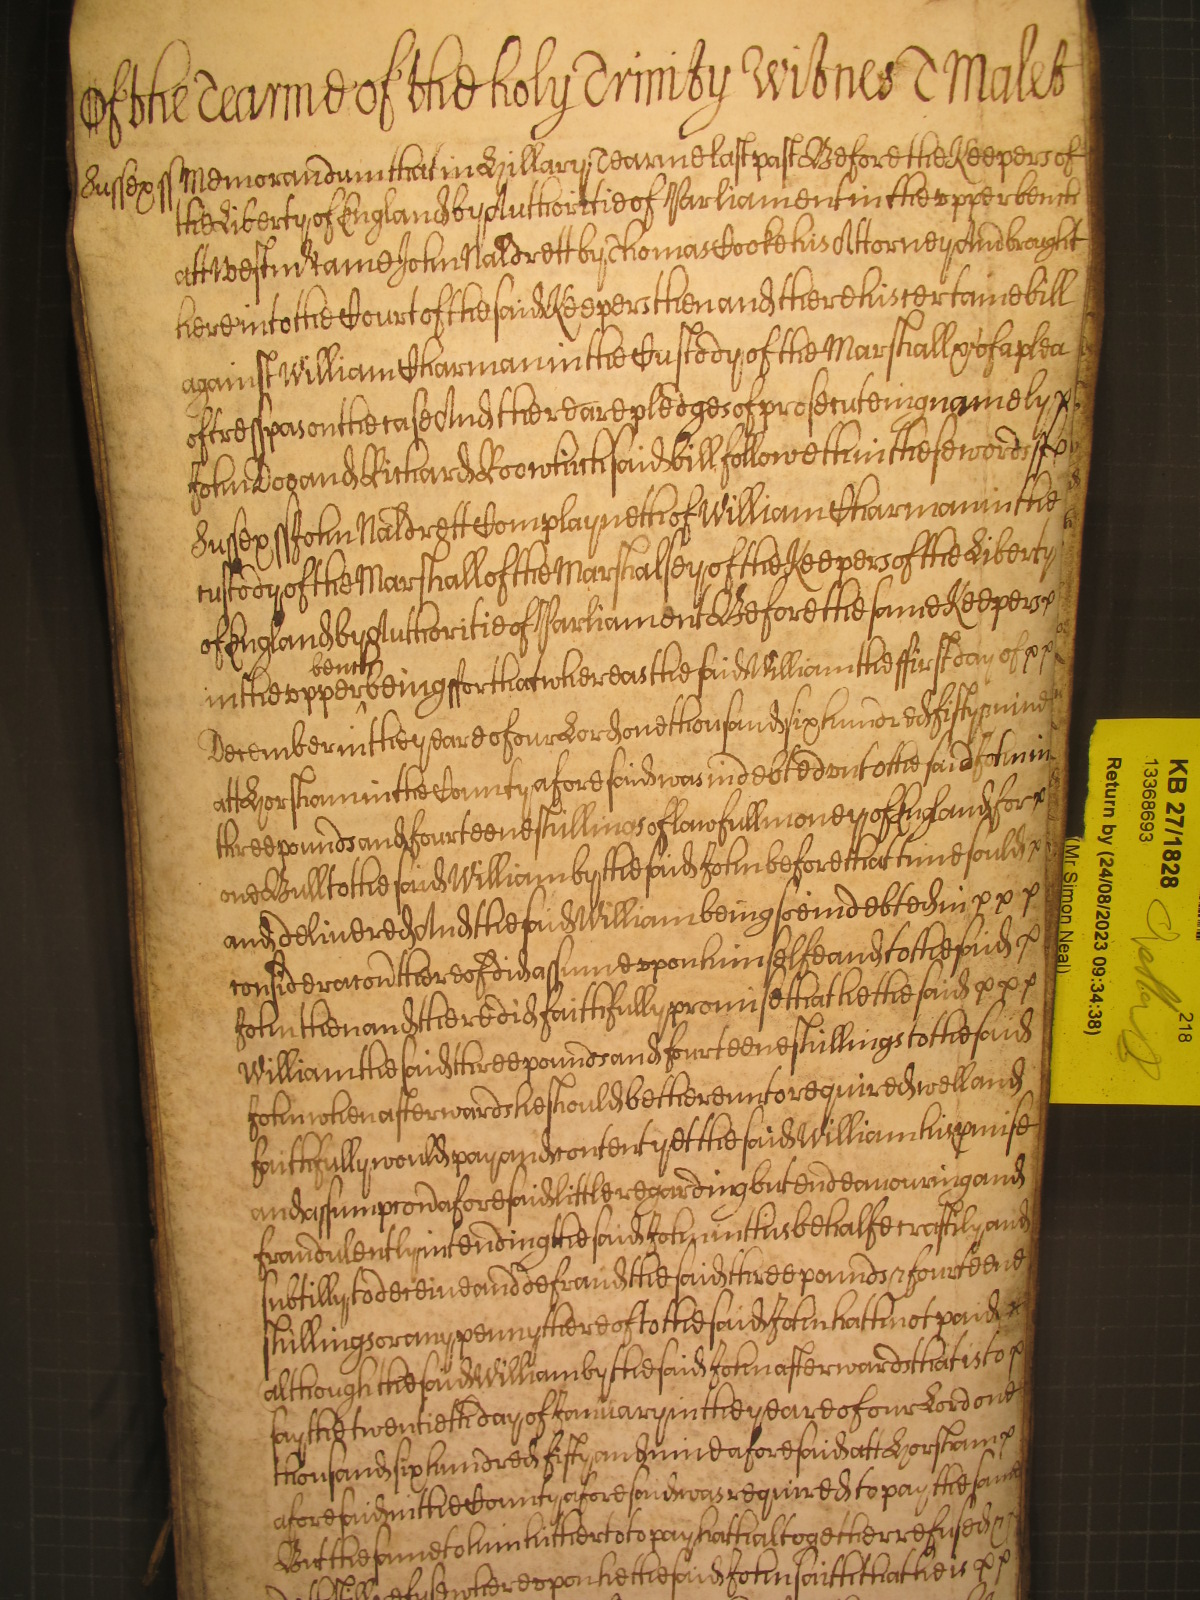 Of the Tearme of the holy Trinity Witnes T Malet
Sussex ss Memorandum that in Hillary Tearme last past Before the Keepers of
the Liberty of England by Authoritie of Parliament in the upper bench
att Westmr came John Naldrett by Thomas Cooke his Attorney And braught
here into the Court of the said Keepers then and there his certaine bill
against William Charman in the Custody of the Marshall &c of a plea
of tresspas on the case And there are pledges of prosecuteing namely
John Doo and Richard Roo which said bill followeth in these words ss
Sussex ss John Naldrett Complayneth of William Charman in the
custody of the Marshall of the Marshalsey of the Keepers of the Liberty
of England by Authoritie of Parliament Before the same Keepers
bench
in the upper being ffor that whereas the said William the ffirst day of
December in the yeare of our Lord one thousand six hundred fifty & nine
att Horsham in the County aforesaid was indebted unto the said John in
three pounds and fourteene shillings of lawfull money of England for
one Bull to the said William by the said John before that time sould
and delivered And the said William being soe indebted in
consideracon thereof did assume upon himselfe and to the said
John then and there did faithfully promise that he the said
William the said three pounds and fourteene shillings to the said
John when afterwards he should be thereunto required well and
faithfully would pay and content yet the said William his pmise
and assumpcon aforesaid little regarding but endeavouring and
fraudulently intending the said John in this behalfe craftily and
subtilly to deceive and defraud the said three pounds & fourteene
shillings or any penny thereof to the said John hath not paid
although the said William by the said John afterwards that is to
say the twentieth day of January in the yeare of our Lord one
thousand six hundred fifty and nine aforesaid att Horsham
aforesaid in the County aforesaid was required to pay the same
But the same to him hitherto to pay hath altogether refused &
doth still refuse whereupon he the said John saith that he is
KB 27/1828
13368693
218
Return by (24/08/2023 09:34:38)
(Mr Simon Neal)